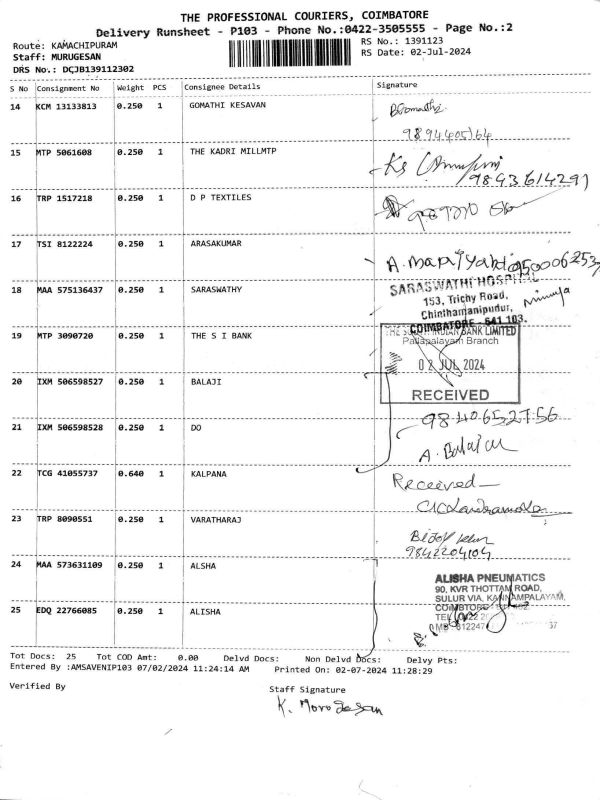 THE PROFESSIONAL COURIERS, COIMBATORE
Delivery Runsheet - P103 - Phone No.:0422-3505555 - Page No.:2
Route: KAMACHIPURAM
RS No.: 1391123
Staff: MURUGESAN
RS Date: 02-Jul-2024
DRS No.: DCJB139112302
S No Consignment No Weight PCS Consignee Details Signature
14 KCM 13133813 0.250 1 GOMATHI KESAVAN
9894405164
15 MTP 5061608 0.250 1 THE KADRI MILLMTP
9893614291
16 TRP 1517218 0.250 1 D P TEXTILES
17 TSI 8122224 0.250 1 ARASAKUMAR
18 MAA 575136437 0.250 1 SARASWATHY
SARASWATHI HOSPITAL
153, Trichy Road,
Chinthamanipudur,
COIMBATORE - 641 103.
19 MTP 3090720 0.250 1 THE S I BANK
THE SOUTH INDIAN BANK LIMITED
Pallapalayam Branch
02 JUL 2024
RECEIVED
20 IXM 506598527 0.250 1 BALAJI
21 IXM 506598528 0.250 1 DO
9840652756
A. Balaji
22 TCG 41055737 0.640 1 KALPANA
Received
23 TRP 8090551 0.250 1 VARATHARAJ
9842204104
24 MAA 573631109 0.250 1 ALSHA
ALISHA PNEUMATICS
90, KVR THOTTAM ROAD,
SULUR VIA, KANNAMPALAYAM,
25 EDQ 22766085 0.250 1 ALISHA
Tot Docs: 25 Tot COD Amt: 0.00 Delvd Docs: Non Delvd Docs: Delvy Pts:
Entered By :AMSAVENIP103 07/02/2024 11:24:14 AM Printed On: 02-07-2024 11:28:29
Verified By
Staff Signature